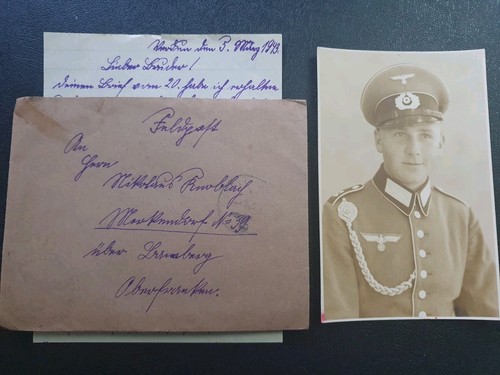 Verdun den 3. März 1943.
Lieber Bruder!
Deinen Brief vom 20. habe ich erhalten
Feldpost
An
Herrn
Nikolaus Knoblach
Merkendorf No 39
über Bamberg
Oberfranken.